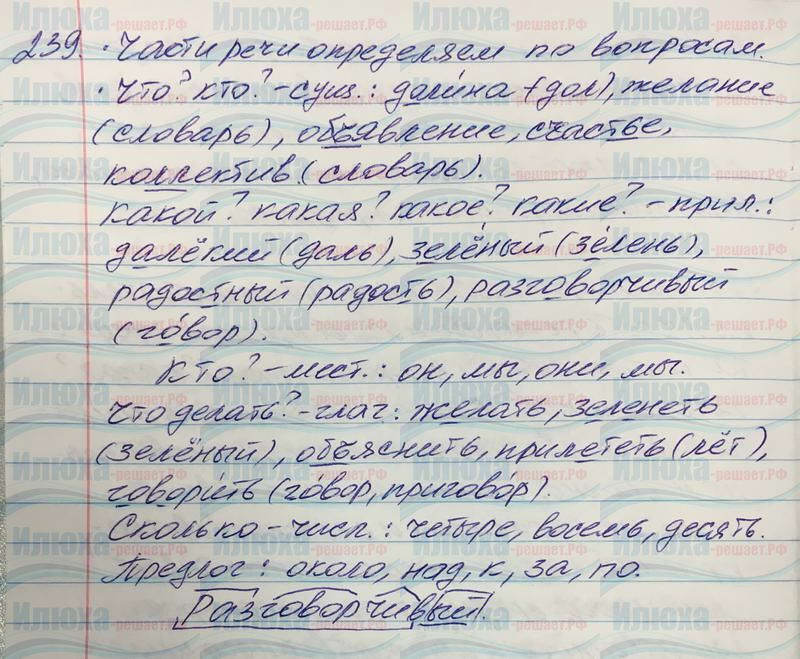 239. · Части речи определяем по вопросам.
· Что? кто? - сущ.: долина (дол), желание
(словарь), объявление, счастье,
коллектив (словарь).
Какой? какая? какое? какие? - прил.:
далёкий (даль), зелёный (зелень),
радостный (радость), разговорчивый
(го́вор).
Кто? - мест.: он, мы, они, мы.
Что делать? - глаг.: желать, зеленеть
(зелёный), объяснить, прилететь (лёт),
говори́ть (го́вор, пригово́р).
Сколько - числ.: четыре, восемь, десять.
Предлог: около, над, к, за, по.
Разговорчивый.